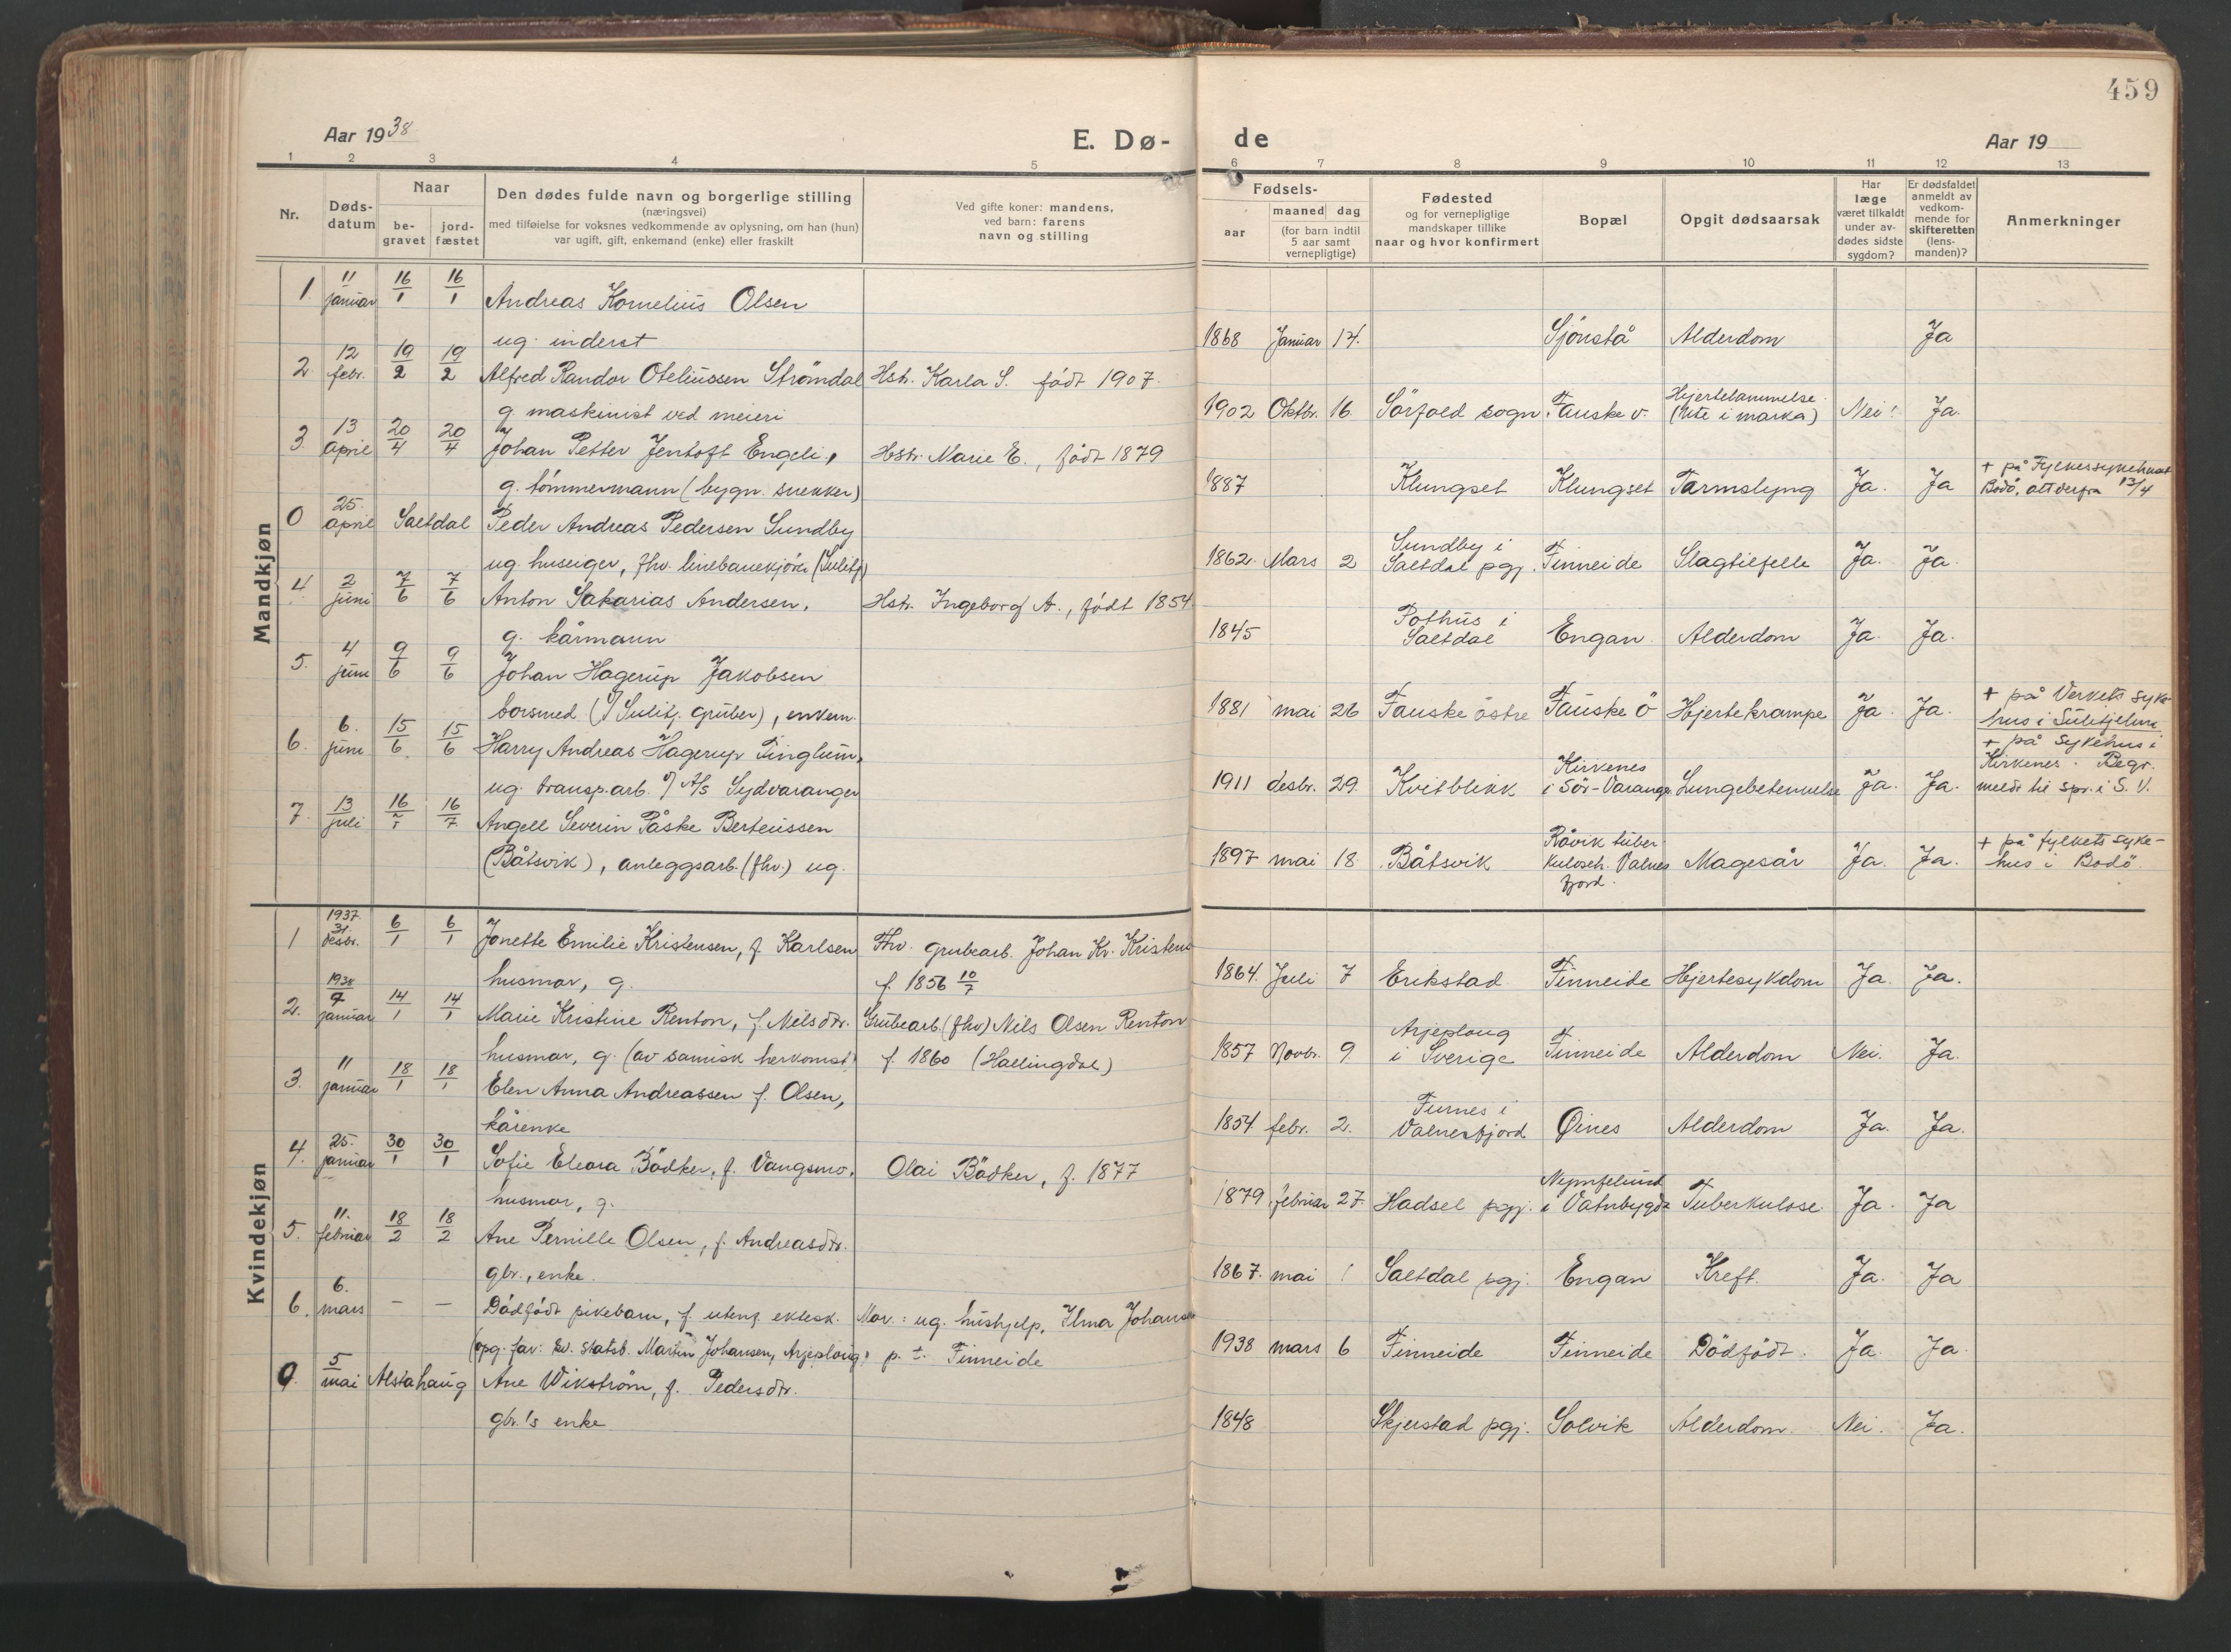 459
Aar 1938
E. Dø-
de
Aar 19
1 2 3 4 5 6 7 8 9 10 11 12 13
Nr.
Døds-
datum
Naar
be-
gravet
jord-
fæstet
Den dødes fulde navn og borgerlige stilling
(næringsvei)
med tilføielse for voksnes vedkommende av oplysning, om han (hun)
var ugift, gift, enkemand (enke) eller fraskilt
Ved gifte koner: mandens,
ved barn: farens
navn og stilling
Fødsels-
aar
maaned dag
(for barn indtil
5 aar samt
vernepligtige)
Fødested
og for vernepligtige
mandskaper tillike
naar og hvor konfirmert
Bopæl
Opgit dødsaarsak
Har
læge
været tilkaldt
under av-
dødes sidste
sygdom?
Er dødsfaldet
anmeldt av
vedkom-
mende for
skifteretten
(lens-
manden)?
Anmerkninger
Mandkjøn
1. 11 januar 16/1 16/1 Andreas Kornelius Olsen
ug. inderst
1868 Januar 14. Sjönstå Alderdom Ja
2. 12 febr. 19/2 19/2 Alfred Randor Oteliussen Strömdal Hstr. Karla S. född 1907.
g. maskinist ved meieri
1902 Oktbr. 16 Sörfold sogn Fauske v. Hjertelammelse
(Ute i marka) Nei! Ja.
3. 13 april 20/4 20/4 Johan Petter Jentoft Engeli, Hstr. Marie E., född 1879
g. tömmermann (bygn. snekker)
1887 Klungset Klungset Tarmslyng Ja. Ja + på Fylkessykehuset
Bodö, att derfra 13/4
0 25. april Saltdal Peder Andreas Pedersen Sundby
ug. huseiger, fhv. linebanekjörer (Sulitj.)
1862. Mars 2 Sundby i
Saltdal pgj. Finneide Slagtilfelle Ja. Ja.
4 2 juni 7/6 7/6 Anton Sakarias Andersen, Hstr. Ingeborg A., född 1854
g. kårmann
1845 Pothus i
Saltdal Engan Alderdom Ja. Ja.
5. 4 juni 9/6 9/6 Johan Hagerup Jakobsen
borsmed (v/ Sulitj. Gruber), enkem.
1881 mai 26 Fauske östre Fauske Ö Hjertekrampe Ja. Ja. + på Verkets syke-
hus i Sulitjelma
6. 6. juni 15/6 15/6 Harry Andreas Hagerup Finglum,
ug. transp.arb. v/ A/s Sydvaranger
1911 desbr. 29. Kvitblikk Kirkenes
i Sör-Varanger Lungebetennelse Ja. Ja. + på Sykehus i
Kirkenes. Begr.
meldt til spr. i S. V.
7. 13 juli 16/7 16/7 Angell Severin Påske Berteussen
(Båtsvik), anleggsarb. (fhv.) ug.
1897 mai 18 Båtsvik Råvik tuber-
kuloseh. Valnes
fjord. Magesår Ja. Ja. + på fylkets syke-
hus i Bodö.
Kvindekjøn
1 1937. 31. desbr. 6/1 6/1 Jonette Emilie Kristensen, f. Karlsen Fhv. grubearb. Johan Kr. Kristens
husmor, g. f. 1856 10/7
1864. Juli 7 Erikstad Finneide Hjertesykdom Ja. Ja.
2. 1938 9 januar 14/1 14/1 Marie Kristine Renton, f. Nilsdtr. Grubearb. (fhv) Nils Olsen Renton
husmor, g. (av samisk herkomst) f. 1860 (Hallingdal)
1857 Novbr. 9. Arjeploug
i Sverige Finneide Alderdom Nei. Ja.
3. 11 januar 18/1 18/1 Elen Anna Andreassen f. Olsen,
kårenke
1854 febr. 2. Furnes i
Valnesfjord Øines Alderdom Ja. Ja.
4. 25. januar 30/1 30/1 Sofie Eleora Bödker, f. Vangsmo. Olai Bödker, f. 1877
husmor, g.
1879. februar 27. Hadsel pgj. Nymfelund
i Vatnbygda Tuberkulose Ja. Ja
5. 11. februar 18/2 18/2 Ane Pernille Olsen, f. Andreasdtr.
gbr., enke.
1867. mai 1 Saltdal pgj. Engan Kreft. Ja. Ja
6. 6. mars — — Dödfödt pikebarn, f. utenf. ektesk. Mor: ug. hushjelp, Ilma Johansen
(opg. far: sv. statsb. Martin Johansen, Arjeploug) p. t. Finneide
1938 mars 6 Finneide Finneide Dödfödt. Ja. Ja.
0. 5 mai Alstahaug Ane Wikström, f. Pedersdtr.
gbr.'s enke
1848 Skjerstad pgj. Solvik Alderdom. Nei. Ja.